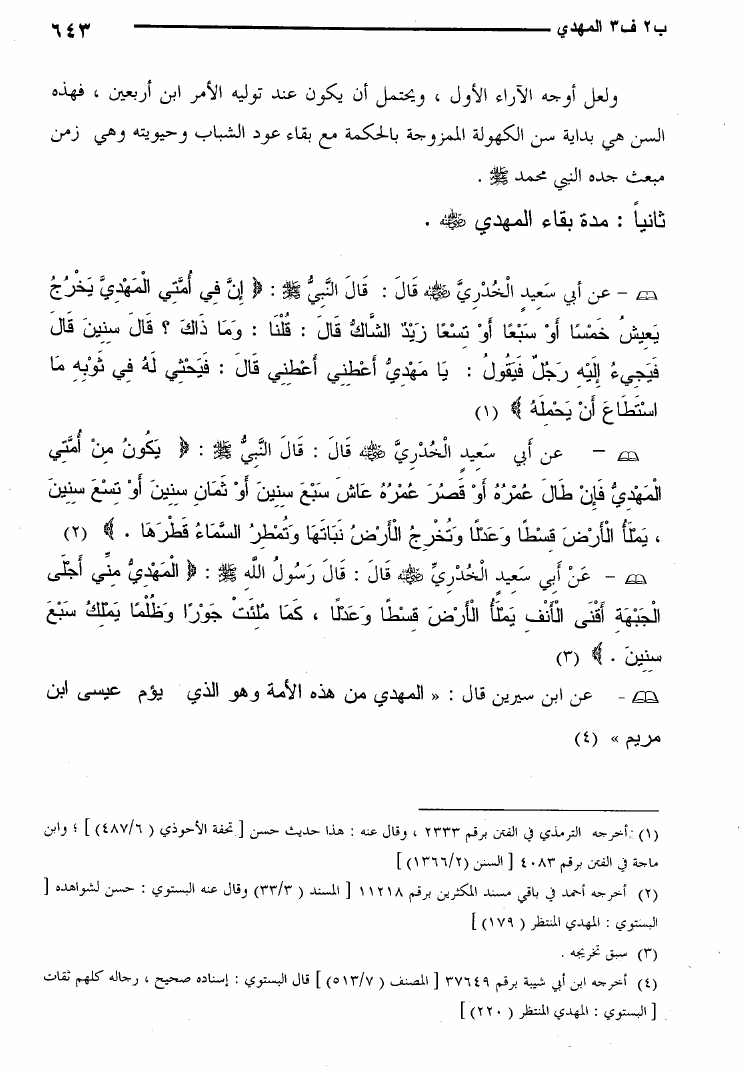 ب٢ ف٣ المهدي ٦٤٣
ولعل أوجه الآراء الأول ، ويحتمل أن يكون عند توليه الأمر ابن أربعين ، فهذه
السن هي بداية سن الكهولة الممزوجة بالحكمة مع بقاء عود الشباب وحيويته وهي زمن
مبعث جده النبي محمد ﷺ .
ثانياً : مدة بقاء المهدي رضي الله عنه .
– عن أبي سَعِيدٍ الْخُدْرِيَّ رضي الله عنه قَالَ : قَالَ النَّبِيُّ ﷺ : ﴿ إِنَّ فِي أُمَّتِي الْمَهْدِيَّ يَخْرُجُ
يَعِيشُ خَمْسًا أَوْ سَبْعًا أَوْ تِسْعًا زَيْدٌ الشَّاكُّ قَالَ : قُلْنَا : وَمَا ذَاكَ ؟ قَالَ سِنِينَ قَالَ
فَيَجِيءُ إِلَيْهِ رَجُلٌ فَيَقُولُ : يَا مَهْدِيُّ أَعْطِنِي أَعْطِنِي قَالَ : فَيَحْثِي لَهُ فِي ثَوْبِهِ مَا
اسْتَطَاعَ أَنْ يَحْمِلَهُ ﴾ (١)
– عن أبي سَعِيدٍ الْخُدْرِيَّ رضي الله عنه قَالَ : قَالَ النَّبِيُّ ﷺ : ﴿ يَكُونُ مِنْ أُمَّتِي
الْمَهْدِيُّ فَإِنْ طَالَ عُمْرُهُ أَوْ قَصُرَ عُمْرُهُ عَاشَ سَبْعَ سِنِينَ أَوْ ثَمَانِ سِنِينَ أَوْ تِسْعَ سِنِينَ
، يَمْلَأُ الْأَرْضَ قِسْطًا وَعَدْلًا وَتُخْرِجُ الْأَرْضُ نَبَاتَهَا وَتُمْطِرُ السَّمَاءُ قَطْرَهَا . ﴾ (٢)
– عَنْ أَبِي سَعِيدٍ الْخُدْرِيِّ رضي الله عنه قَالَ : قَالَ رَسُولُ اللَّهِ ﷺ : ﴿ الْمَهْدِيُّ مِنِّي أَجْلَى
الْجَبْهَةِ أَقْنَى الْأَنْفِ يَمْلَأُ الْأَرْضَ قِسْطًا وَعَدْلًا ، كَمَا مُلِئَتْ جَوْرًا وَظُلْمًا يَمْلِكُ سَبْعَ
سِنِينَ . ﴾ (٣)
- عن ابن سيرين قال : « المهدي من هذه الأمة وهو الذي يؤم عيسى ابن
مريم » (٤)
(١) أخرجه الترمذي في الفتن برقم ٢٣٣٣ ، وقال عنه : هذا حديث حسن [ تحفة الأحوذي ( ٤٨٧/٦) ] ؛ وابن
ماجة في الفتن برقم ٤٠٨٣ [ السنن (١٣٦٦/٢) ]
(٢) أخرجه أحمد في باقي مسند المكثرين برقم ١١٢١٨ [ المسند ( ٣٣/٣) وقال عنه البستوي : حسن لشواهده [
البستوي : المهدي المنتظر ( ١٧٩) ]
(٣) سبق تخريجه .
(٤) أخرجه ابن أبي شيبة برقم ٣٧٦٤٩ [ المصنف ( ٥١٣/٧) ] قال البستوي : إسناده صحيح ، رجاله كلهم ثقات
[ البستوي : المهدي المنتظر ( ٢٢٠) ]